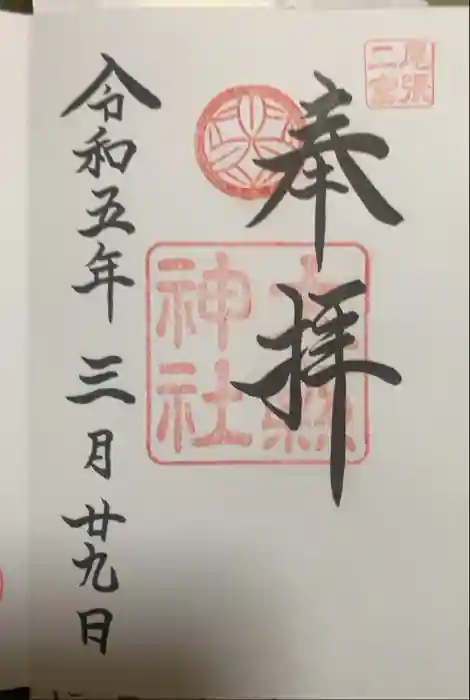 尾張
二宮
奉拝
大縣
神社
令和五年三月廿九日